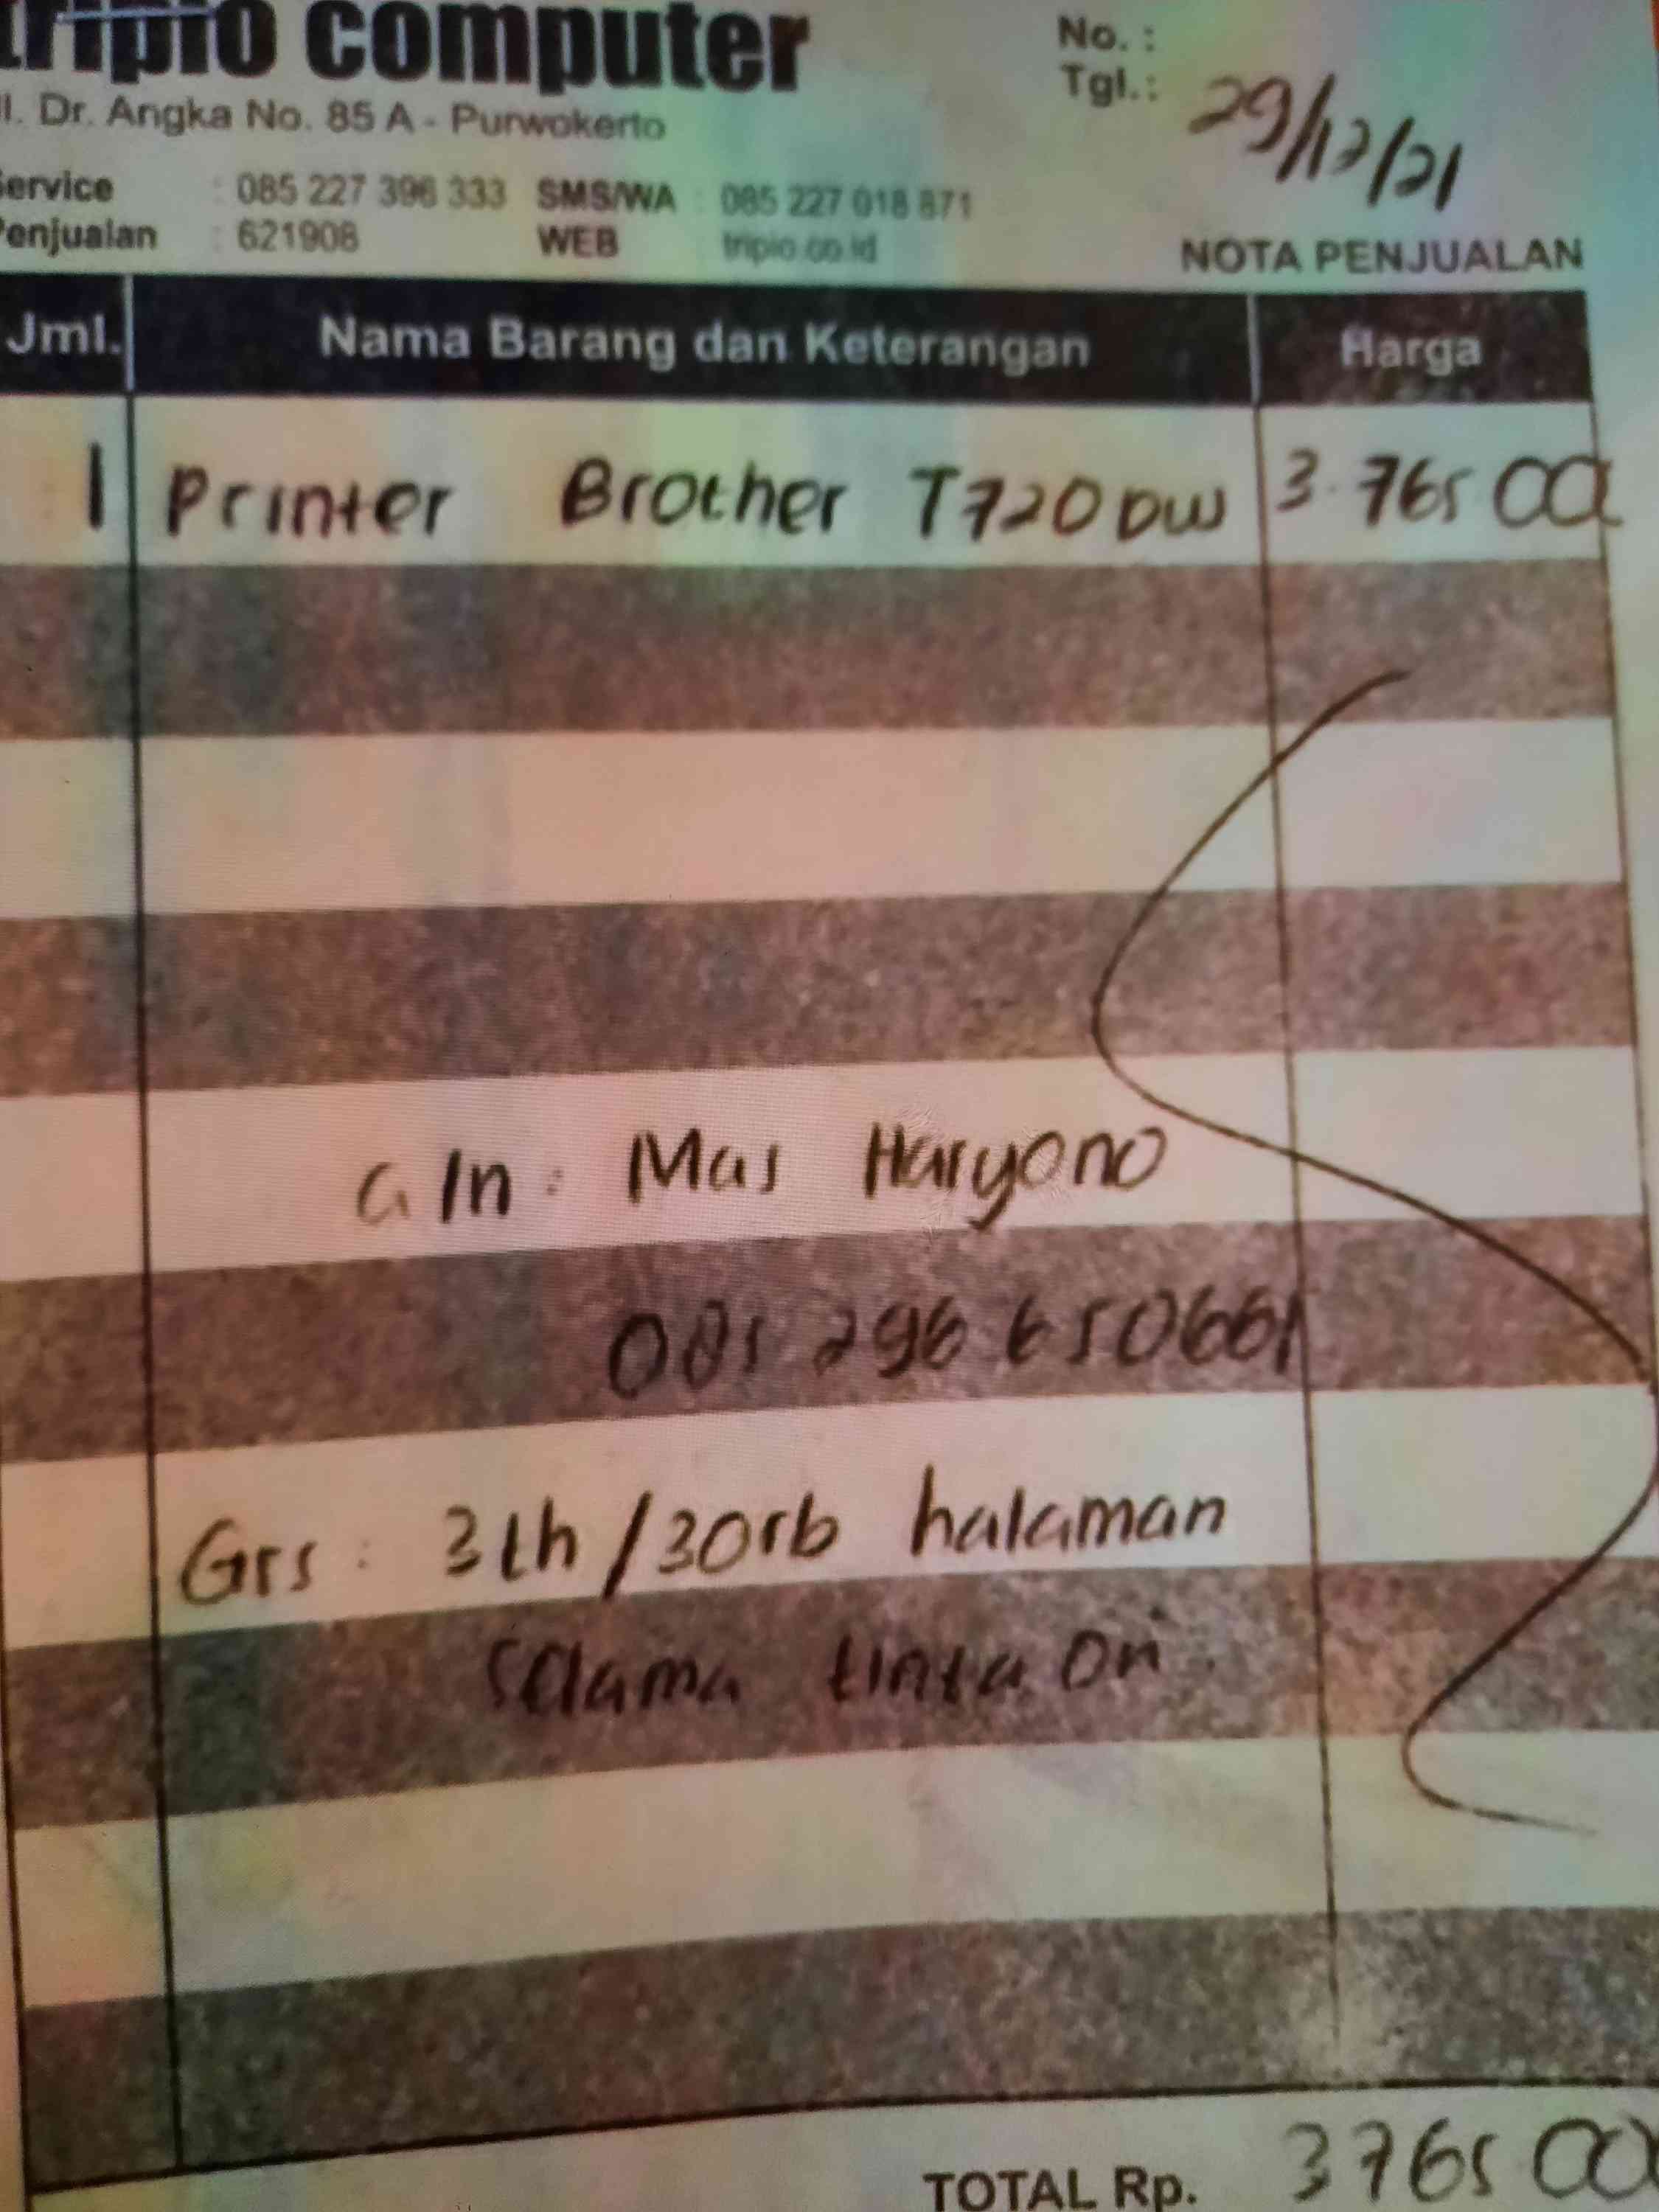 tripio computer
Jl. Dr. Angka No. 85 A - Purwokerto
No. :
Tgl.: 29/12/21
Service : 085 227 396 333 SMS/WA : 085 227 018 871
Penjualan : 621908 WEB : tripio.co.id
NOTA PENJUALAN
Jml. Nama Barang dan Keterangan Harga
1 Printer Brother T720DW 3.765 000
a/n : Mas Haryono
085 296 650661
Grs : 3th/30rb halaman
selama tinta ori.
TOTAL Rp. 3765 000